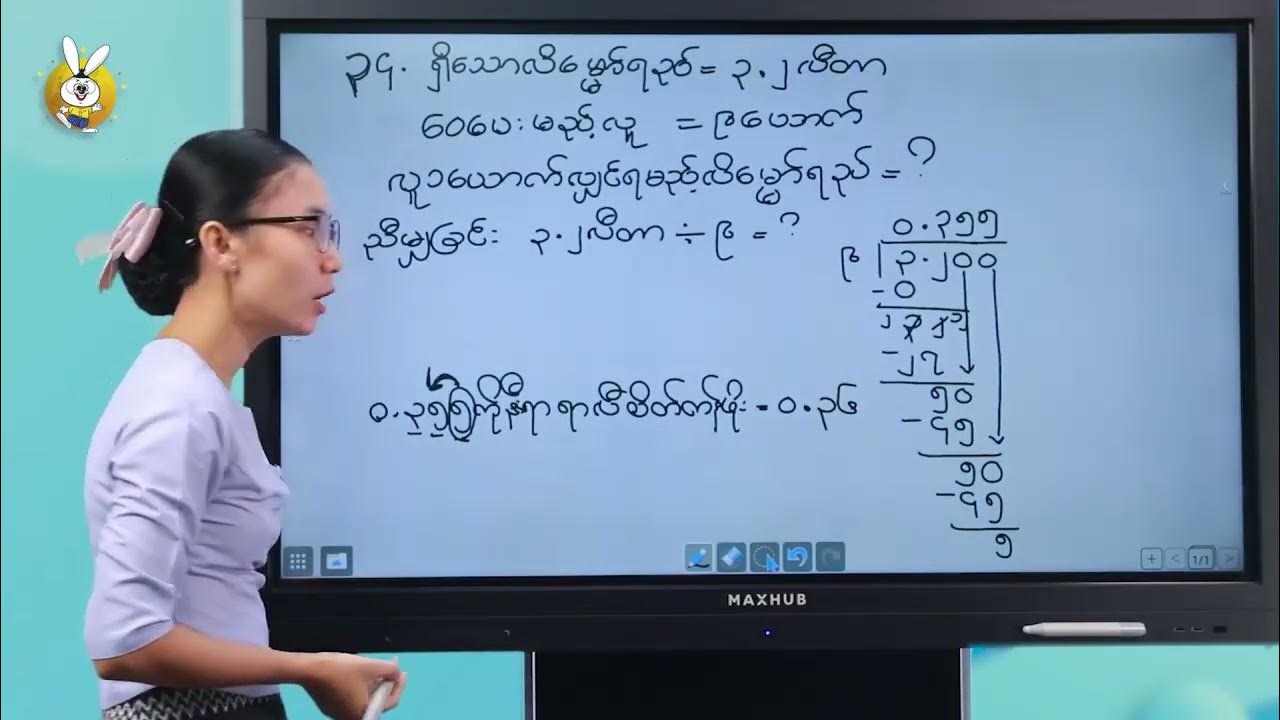 ၃၄. ရှိသောလိမ္မော်ရည် = ၃.၂ လီတာ
ဝေပေးမည့်လူ = ၉ယောက်
လူ၁ယောက်လျှင်ရမည့်လိမ္မော်ရည် = ?
ညီမျှခြင်း ၃.၂လီတာ ÷ ၉ = ?
၀.၃၅၅
၉ ၃.၂၀၀
-၀
၃၂
-၂၇
၅၀
-၄၅
၅၀
-၄၅
၅
၀.၃၅၅ကိုအနီး = ၀.၃၆
1/1
MAXHUB